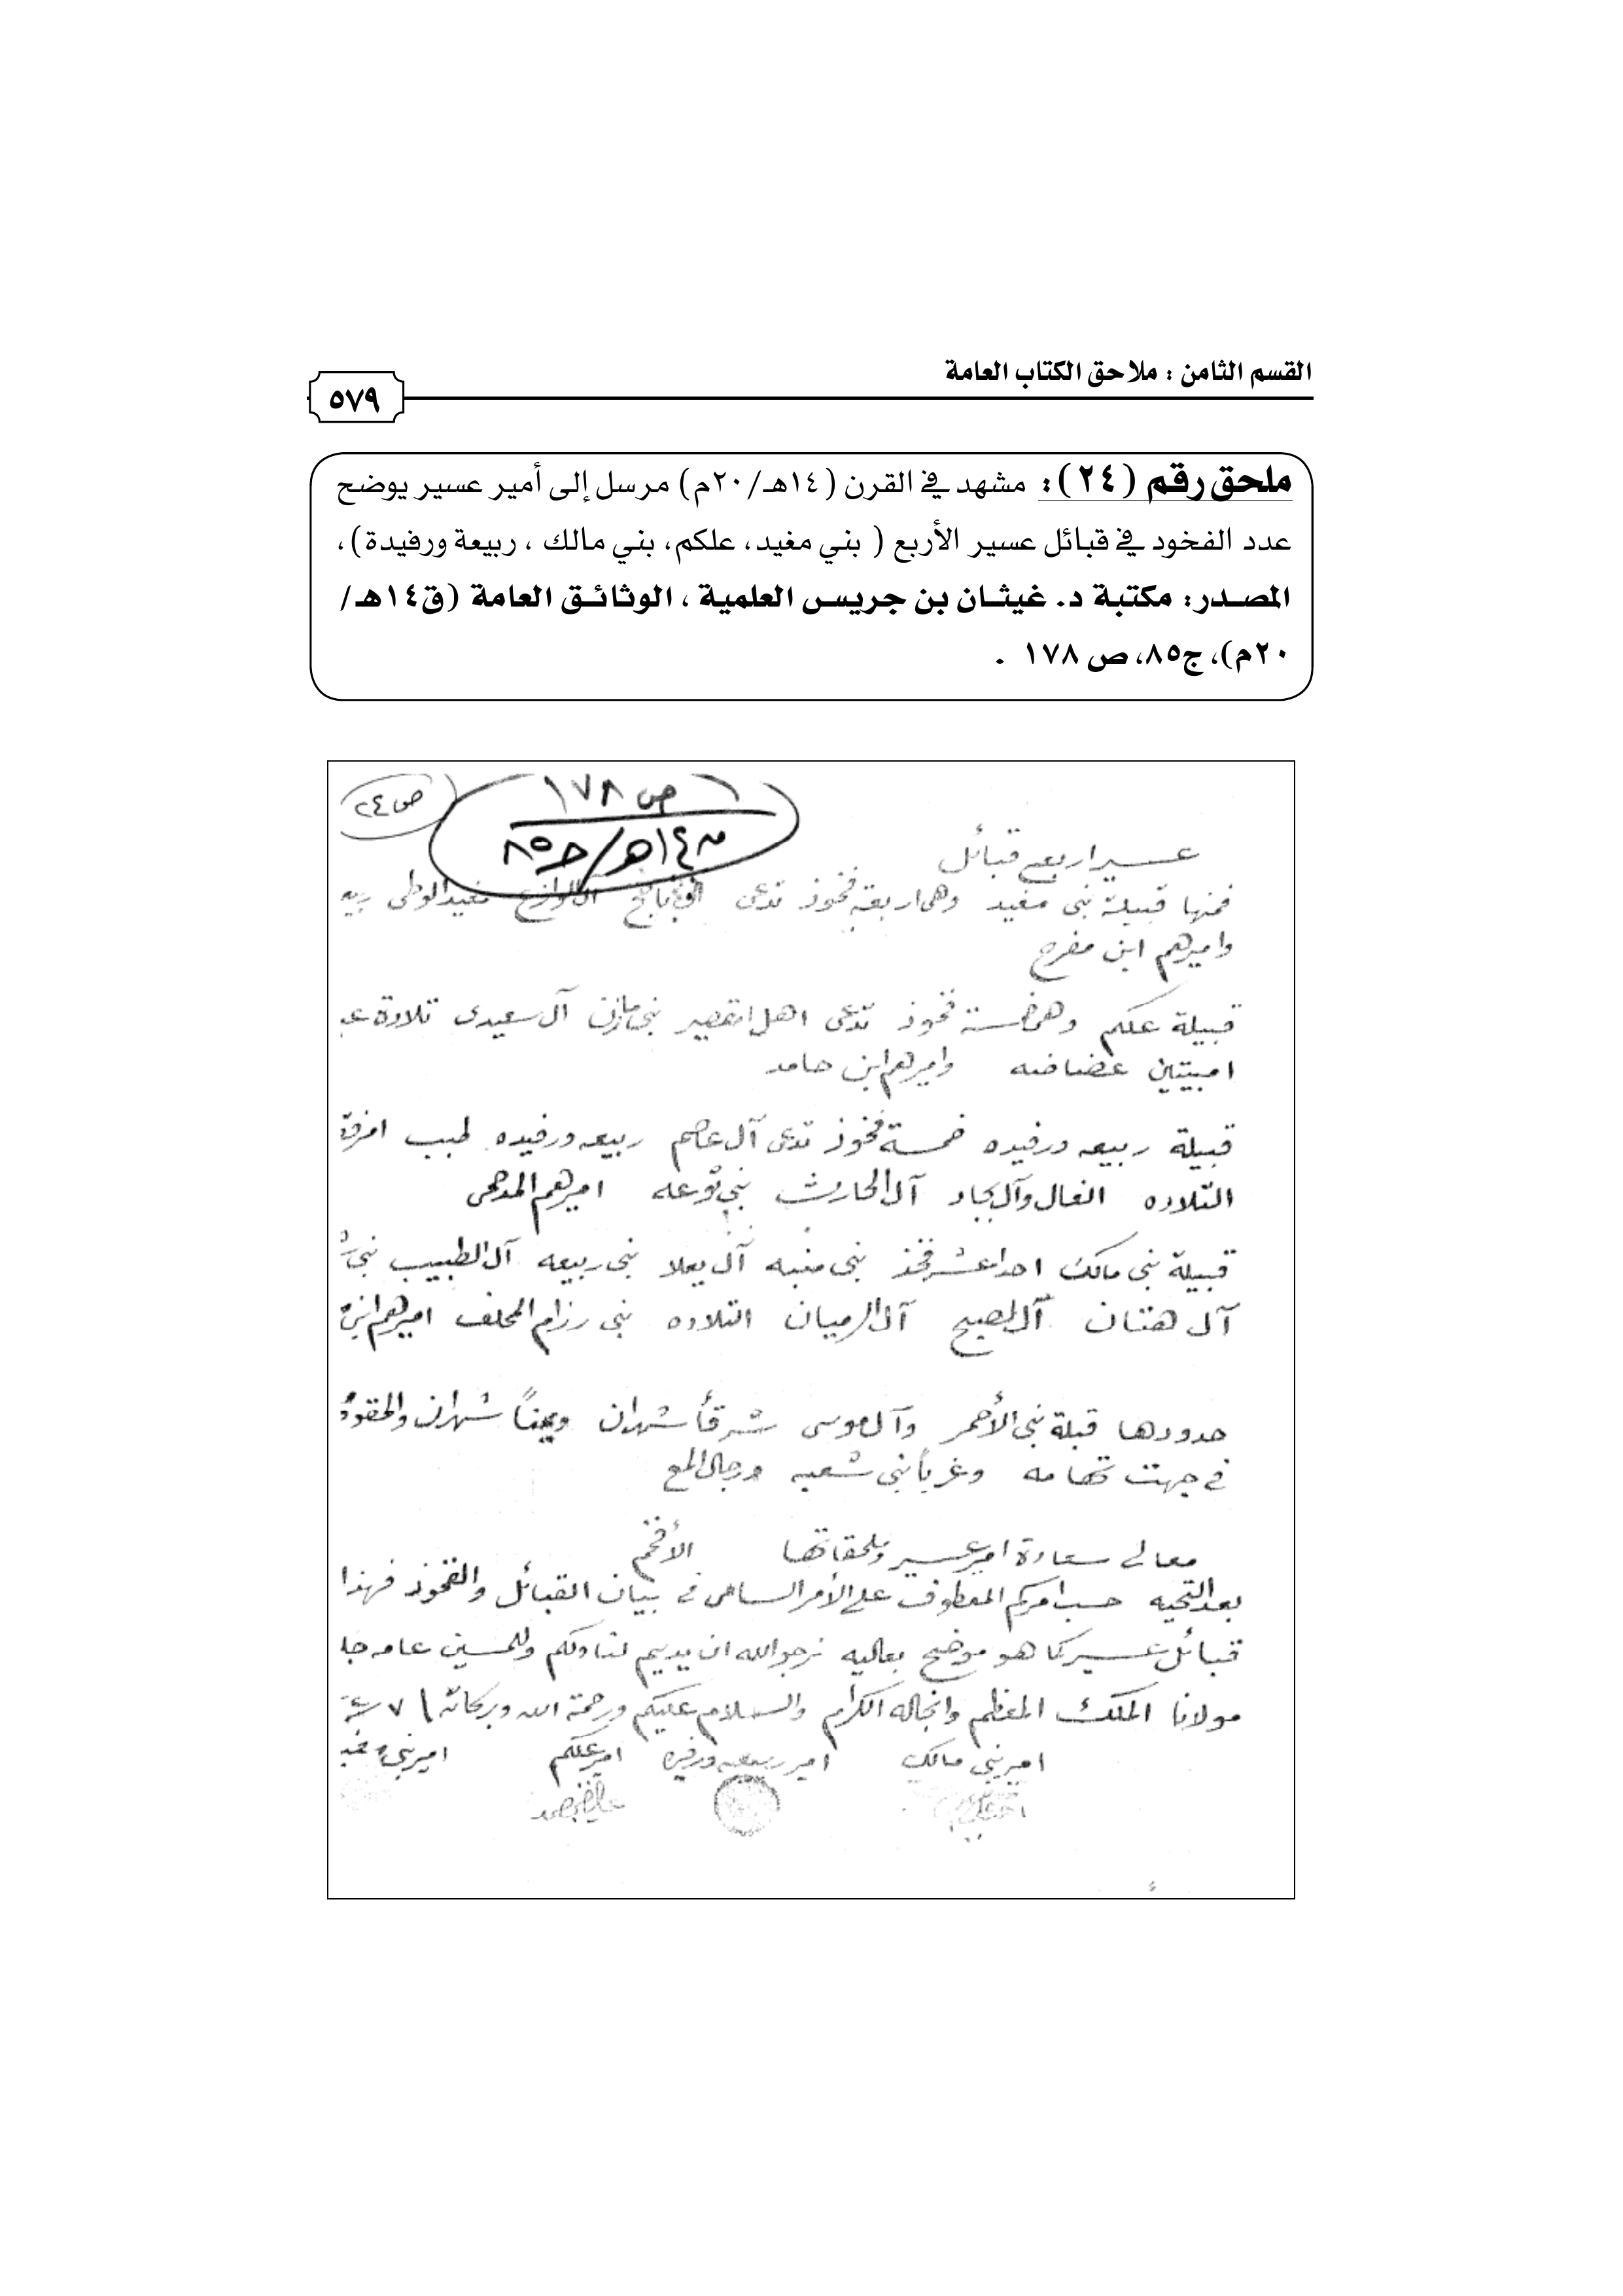 القسم الثامن : ملاحق الكتاب العامة
٥٧٩
ملحق رقم (٢٤): مشهد في القرن (١٤هـ/٢٠م) مرسل إلى أمير عسير يوضح
عدد الفخود في قبائل عسير الأربع ( بني مغيد، علكم، بني مالك ، ربيعة ورفيدة)،
المصدر: مكتبة د. غيثان بن جريس العلمية ، الوثائق العامة (ق١٤هـ/
٢٠م)، ج٨٥، ص ١٧٨ .
ص ٢٤
ص ١٧٨
ق١٤هـ/ج٨٥
عسير اربع قبائل
فمنها قبيلة بني مغيد وهي اربعة فخوذ تدعى مغيد الوطى
واميرهم ابن مفرح
قبيلة علكم وهم خمسة فخوذ تدعى اهل امقصير بني مازن آل سعيدى تلادة
امبيتين عضاضه واميرهم ابن حامد
قبيلة ربيعه ورفيده خمسة فخوذ تدعى آل عاصم ربيعه ورفيده طبب
التلاده آل الحارث بني توعه اميرهم المدحى
قبيلة بني مالك احداعشر فخذ بني منبه آل يعلا بني ربيعه آل الطبيب
آل هفتان آل مصبح آل الرميان التلاده بني رزام المحلف اميرهم
حدودها قبلة بني الأحمر وآل موسى شرقاً شهران ويمناً شهران
في جهت تهامه وغرباً بني شعبه ورجال المع
معالي سعادة امير عسير وملحقاتها الأفخم
بعد التحيه حسب امركم المعطوف على الأمر السامى في بيان القبائل والفخوذ فهذا
قبائل عسير كما هو موضح بعاليه نرجو الله ان يديم لنا ولكم وللمسلمين عامه
مولانا الملك المعظم وانجاله الكرام والسلام عليكم ورحمة الله وبركاته
امير بني مالك امير ربيعه ورفيده امير علكم امير بني مغيد